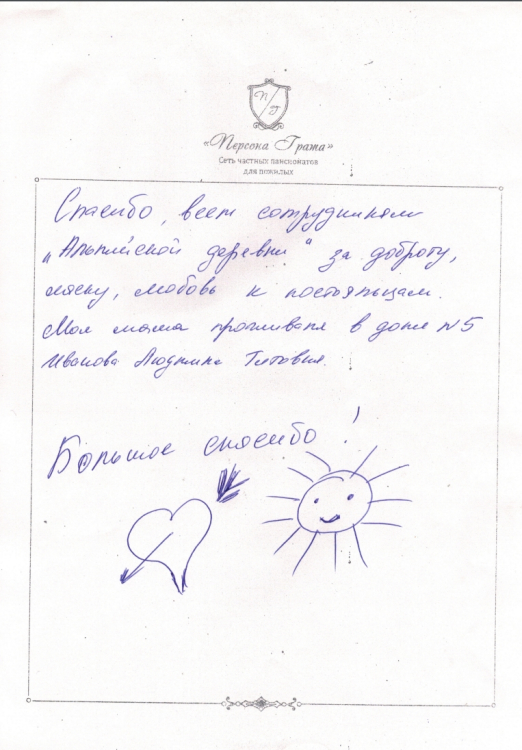 П/Г
«Персона Грата»
Сеть частных пансионатов
для пожилых
Спасибо, всем сотрудникам
„Альпийской деревни“ за доброту,
ласку, любовь к постояльцам.
Моя мама проживала в доме №5
Иванова Людмила Титовна.
Большое спасибо!